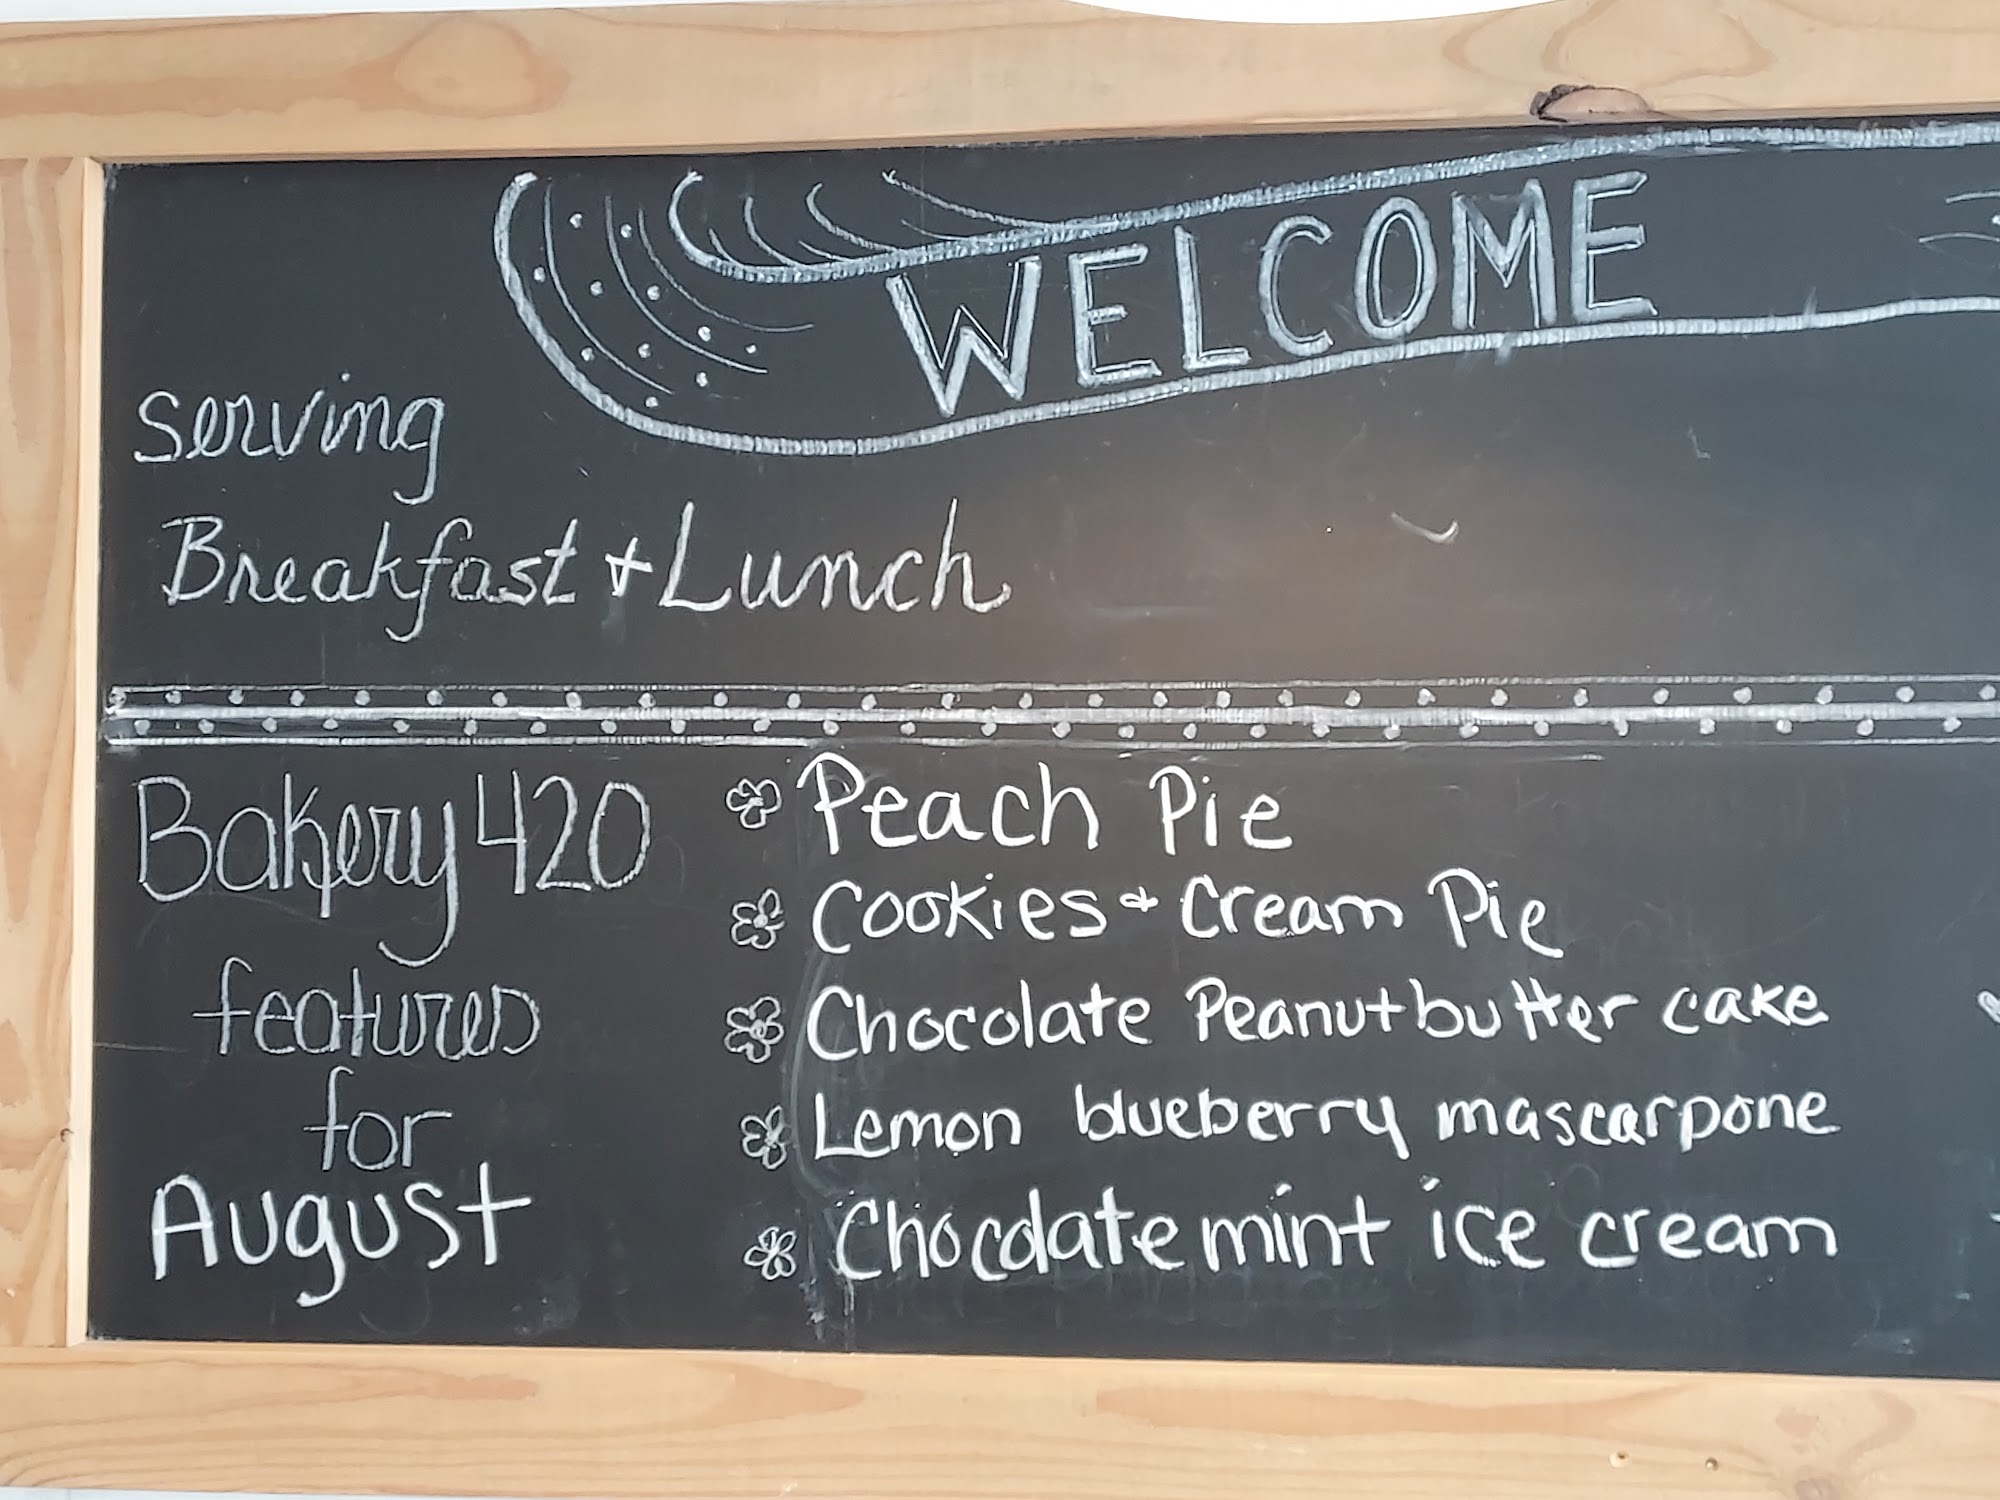 WELCOME
Serving
Breakfast + Lunch
Bakery 420
features
for
August
Peach Pie
Cookies + Cream Pie
Chocolate Peanutbutter cake
Lemon blueberry mascarpone
Chocolate mint ice cream